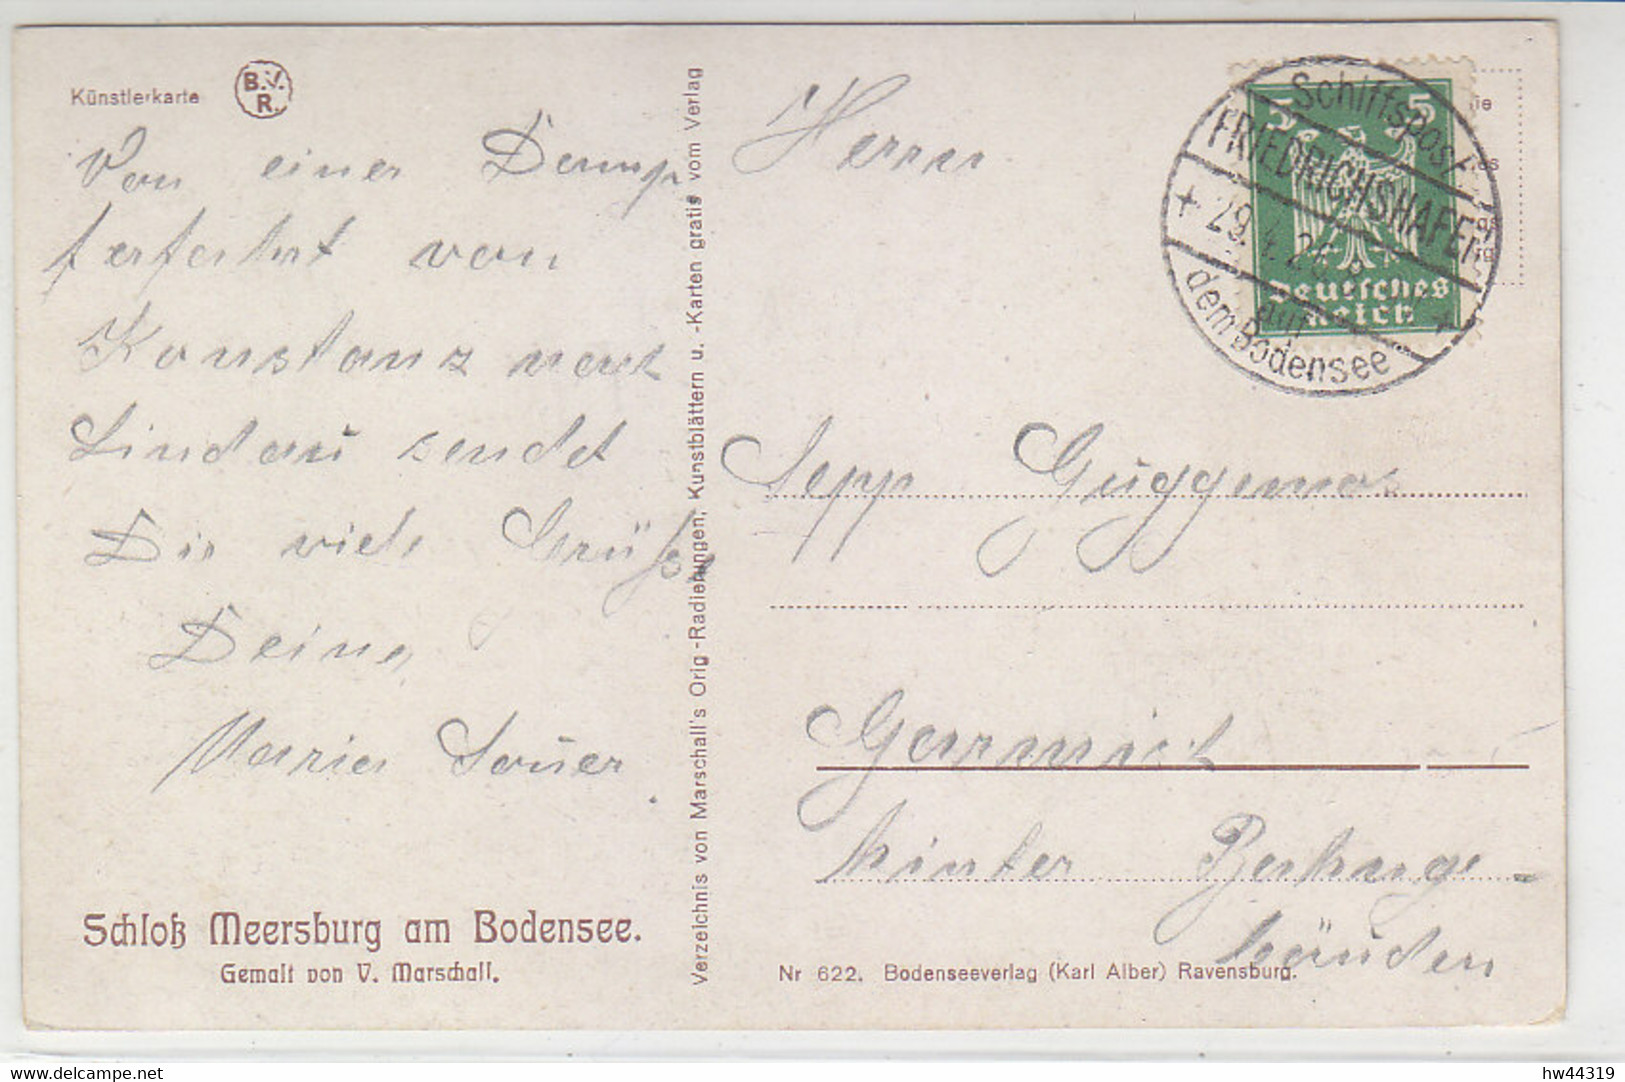 Künstlerkarte
B.V.
R.
Von einer Damp
ferfahrt von
Konstanz nach
Lindau sendet
Dir viele Grüße
Deine
Maria Sauer
Schloß Meersburg am Bodensee.
Gemalt von V. Marschall.
Verzeichnis von Marschall's Orig.-Radierungen, Kunstblättern u. -Karten gratis vom Verlag
Herrn
Sepp Guggemos
Garmisch
hinter Bahnge-
bäuden
Nr 622. Bodenseeverlag (Karl Alber) Ravensburg.
5 5
Deutsches
Reich
Schiffspost
FRIEDRICHSHAFEN
29.4.26
auf
dem Bodensee
delcampe.net
hw44319